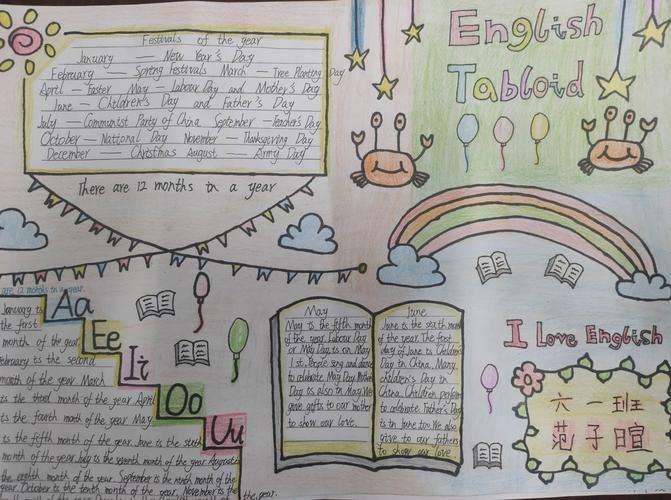 Festivals of the year
January — New Year's Day
February — Spring Festivals March — Tree Planting Day
April — Easter May — Labour Day and Mother's Day
June — Children's Day and Father's Day
July — Communist Party of China September — Teacher's Day
October — National Day November — Thanksgiving Day
December — Christmas August — Army Day
There are 12 months in a year
English
Tabloid
are 12 months in a year.
January is
the first
month of the year.
February is the second
month of the year March
is the third month of the year April
is the fourth month of the year May
is the fifth month of the year June is the sixth
month of the year July is the seventh month of the year August is
the eighth month of the year. September is the ninth month of the
year. October is the tenth month of the year. November is the
the year.
Aa
Ee
Ii
Oo
Uu
May
May is the fifth month
of the year. Labour Day
or May Day is on May
1st. People sing and dance
to celebrate May Day. Mother's
Day is also in May. We
give gifts to our mother
to show our love.
June
June is the sixth month
of the year. The first
day of June is Children's
Day in China. Many
children's Day in
China. Children perform
to celebrate. Father's Day
is in June too. We also
give to our fathers
to show our love
I Love English
六一班
范子暄